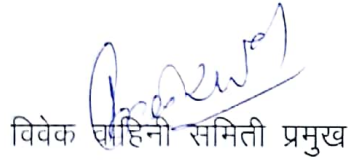 विवेक वाहिनी समिती प्रमुख